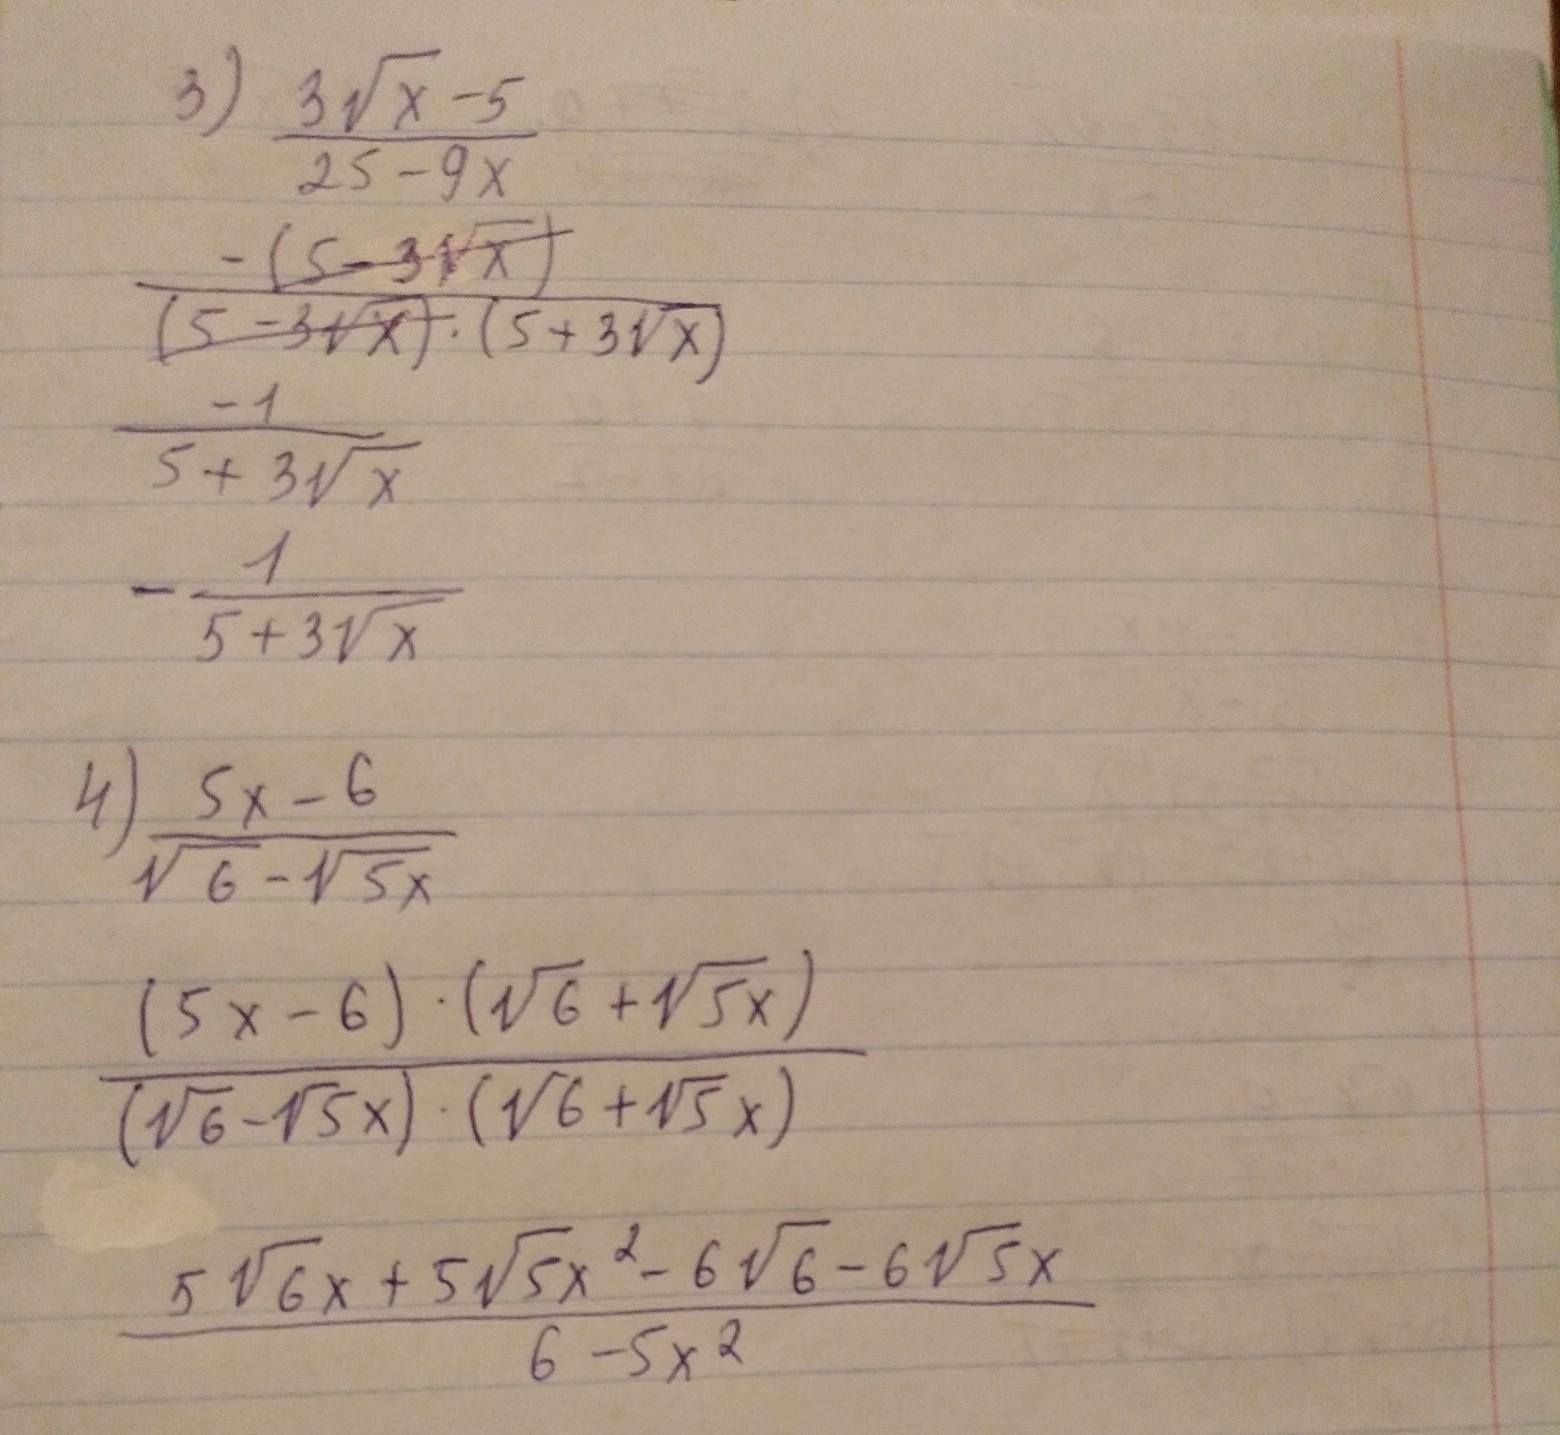 3) 3√x - 5
25 - 9x
-(5 - 3√x)
(5 - 3√x) · (5 + 3√x)
-1
5 + 3√x
- 1
5 + 3√x
4) 5x - 6
√6 - √5x
(5x - 6) · (√6 + √5x)
(√6 - √5x) · (√6 + √5x)
5√6x + 5√5x² - 6√6 - 6√5x
6 - 5x²